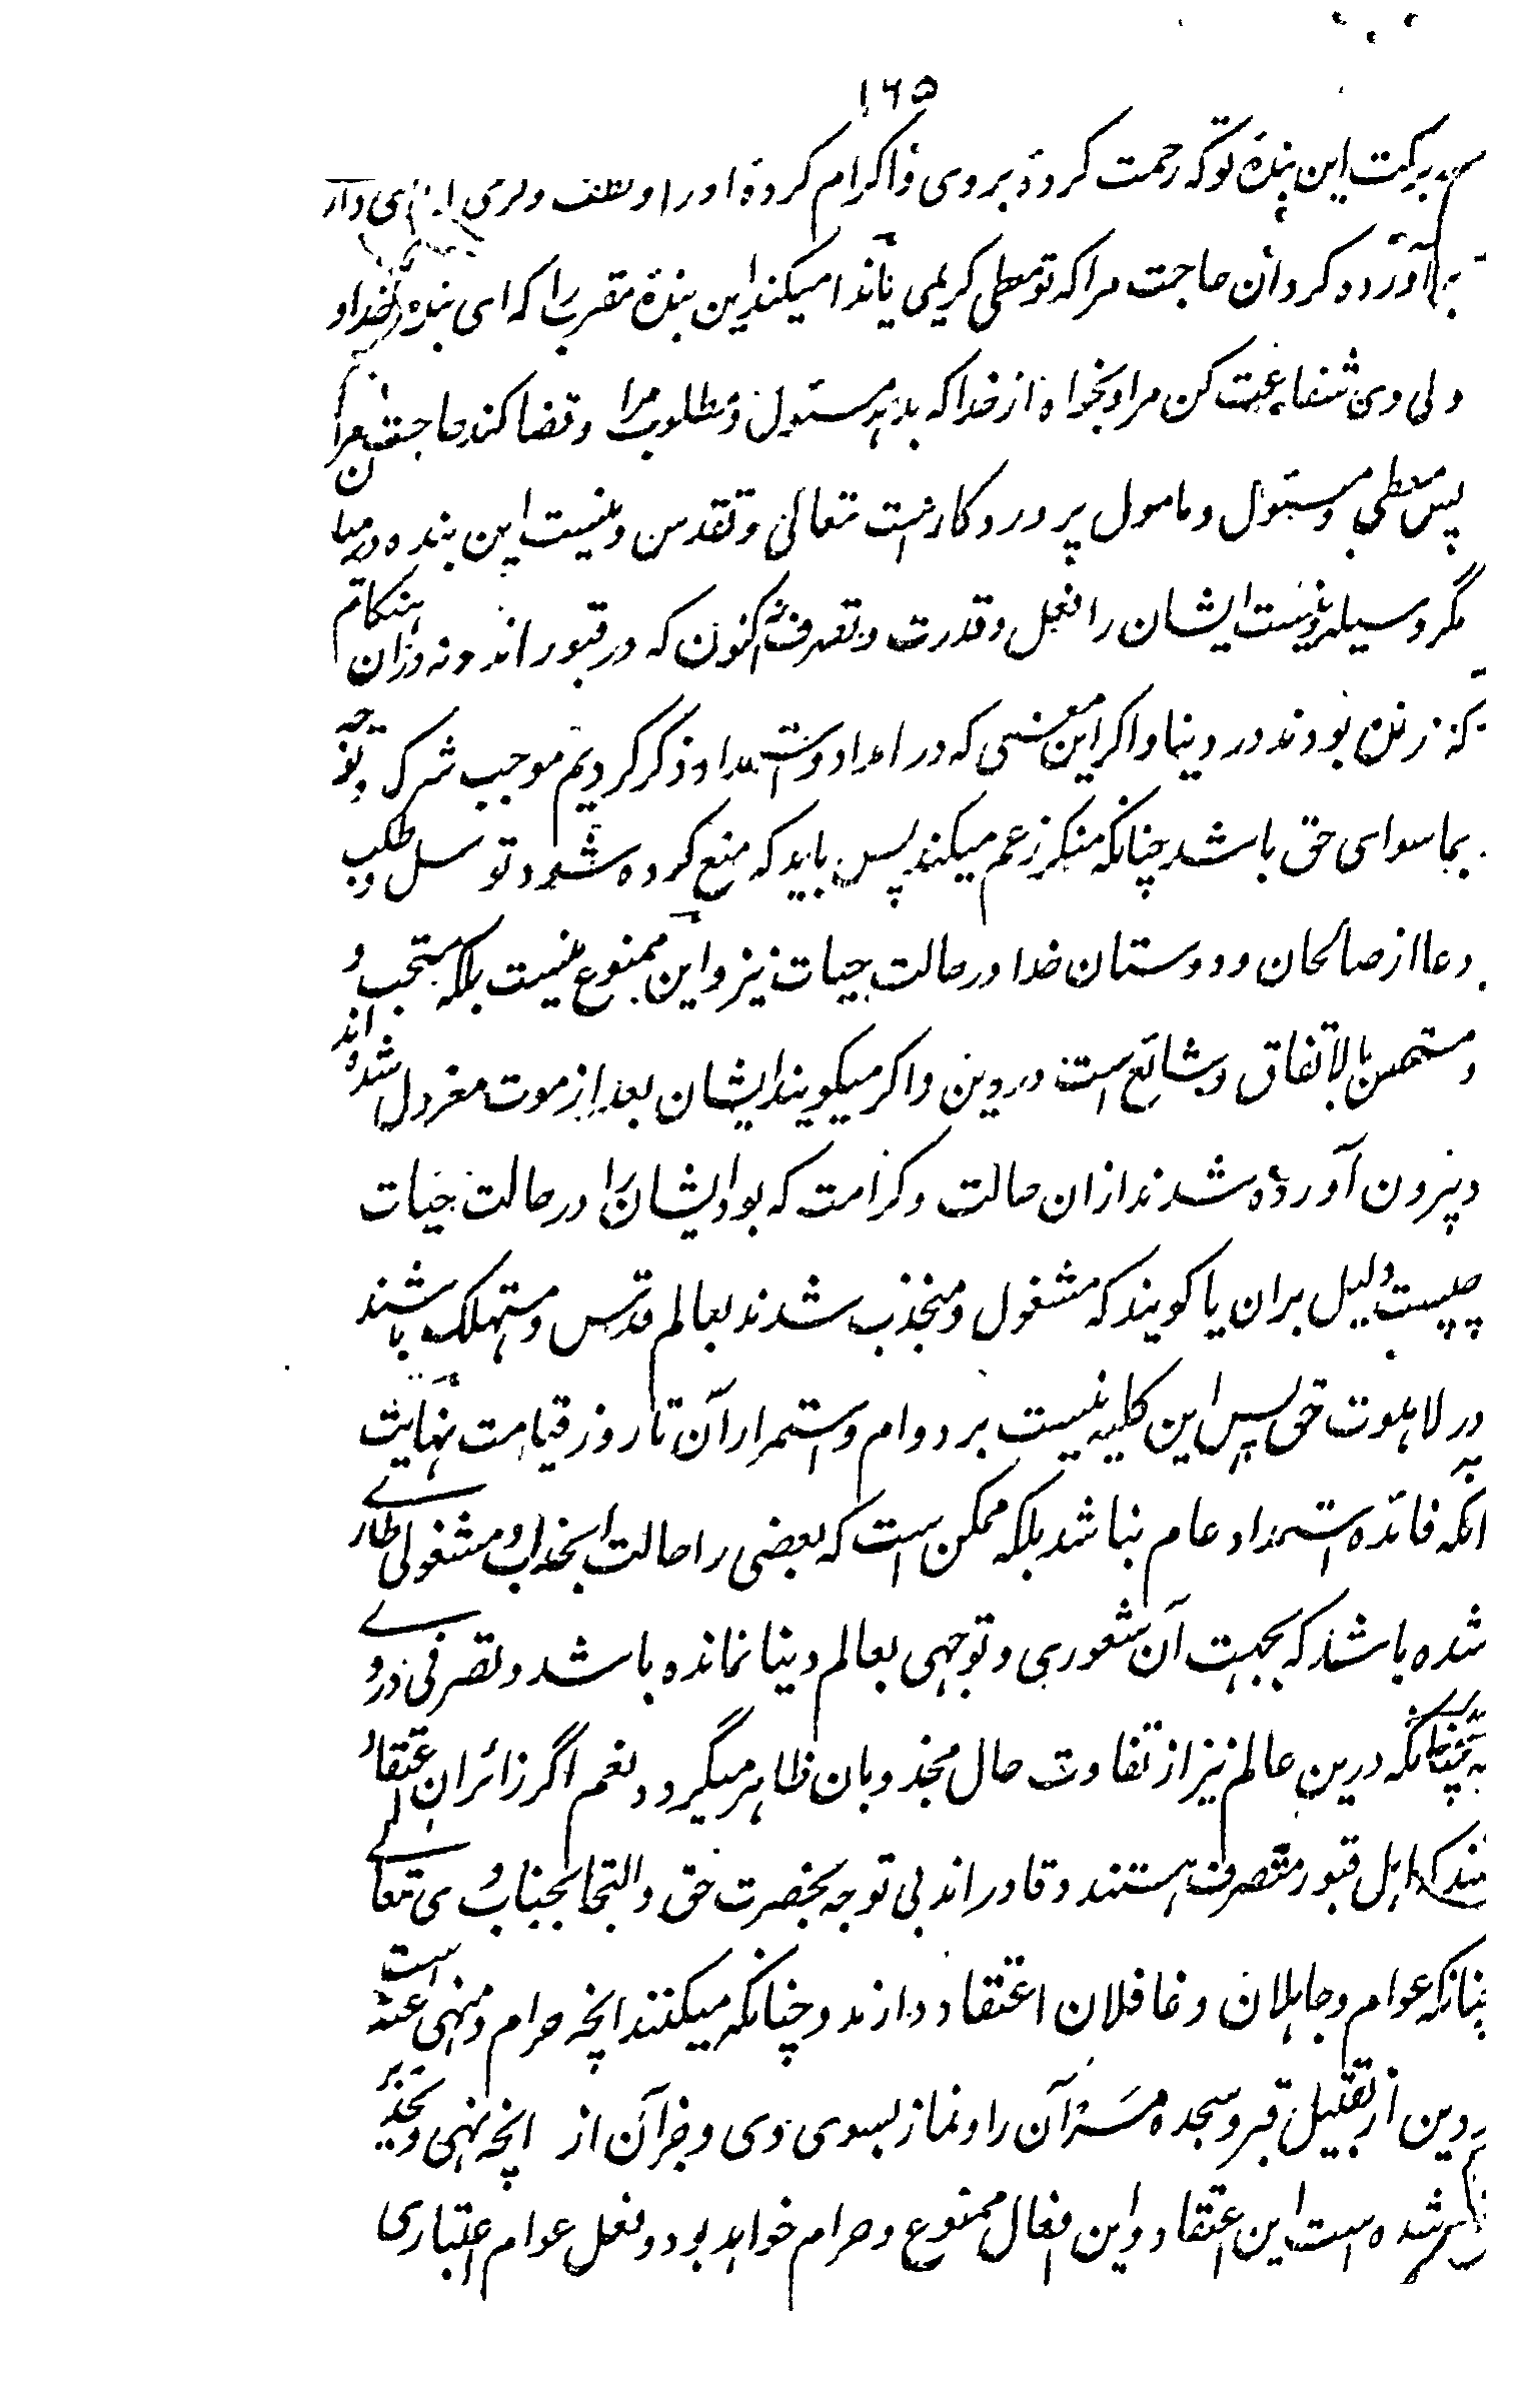 ۱۶۵
ببرکت این بندۀ تو که رحمت کردۀ بروی و اکرام کردۀ اورا و لطف و کرمی که بوی داری
برآورده گردان حاجت مرا که تو معطی کریمی یا ندا میکند این بندۀ مقرب را که ای بندۀ خدا و
ولی وی شفاعت کن مرا و بخواه از خدا که بدهد مسئول و مطلوب مرا و قضا کند حاجت مرا
پس معطی و مسئول و مامول پروردگارست تعالی و تقدس و نیست این بنده درمیان
مگر وسیله و نیست ایشان را فعل و قدرت و تصرف نه اکنون که در قبور اند و نه در آن هنگام
که زنده بودند در دنیا و اگر این معنی که در امداد و استمداد ذکر کردیم موجب شرک و توجه
بماسوای حق باشد چنانکه منکر زعم میکند پس باید که منع کرده شود توسل و طلب
دعا از صالحان و دوستان خدا در حالت حیات نیز و این ممنوع نیست بلکه مستحب و
و مستحسن بالاتفاق و شائع است در دین و اگر میگویند ایشان بعد از موت معزول شده اند
و بیرون آورده شدند از ان حالت و کرامت که بود ایشان را در حالت حیات
چیست دلیل بران یا گویند که مشغول و منجذب شدند بعالم قدس و مستهلک باشند
در لاهوت حق پس این کلیه نیست بر دوام و استمرار آن تا روز قیامت نهایت
آنکه فائده استمداد عام نباشد بلکه ممکن است که بعضی را حالت انجذاب و مشغولی طاری
شده باشد که بجهت آن شعوری و توجهی بعالم دنیا نمانده باشد و تصرفی در وی
نه چنانکه درین عالم نیز از تفاوت حال مجذوبان ظاهر میگردد نعم اگر زائران اعتقاد
کنند که اهل قبور متصرف هستند و قادر اند بی توجه بحضرت حق و التجا بجناب وی تعالے
چنانکه عوام و جاهلان و غافلان اعتقاد دارند و چنانکه میکنند آنچه حرام و منهی عنه است
در دین از تقبیل قبر و سجده مر آن را و نماز بسوی وی و جز آن از آنچه نهی و تحذیر
شده است این اعتقاد و این افعال ممنوع و حرام خواهد بود و فعل عوام اعتباری